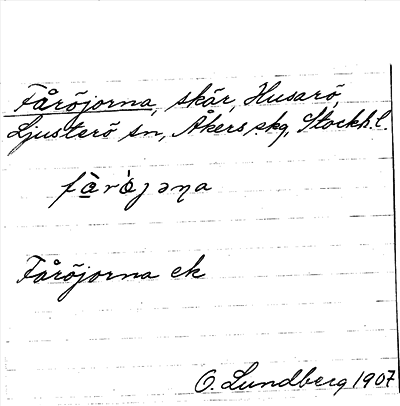 Fåröjorna, skär, Husarö,
Ljusterö sn, Åkers skg, Stockh. l.
fàrö̀jəṇa
Fåröjorna ek
O. Lundberg 1907